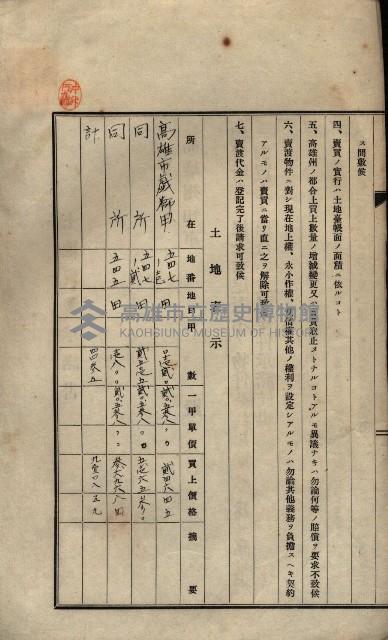 ス間敷候
四、賣買ノ實行ハ土地臺帳面ノ面積ニ依ルコト
五、高雄州ノ都合上買上數量ノ增減變更又ハ買收取止メトナルコトアルモ異議ナキハ勿論何等ノ賠償ヲ要求不致候
六、賣渡物件ニ對シ現在地上權、永小作權、賃借權其他ノ權利ヲ設定シアルモノハ勿論其他義務ヲ負擔スヘキ契約
アルモノハ賣買ニ當リ直ニ之ヲ解除可致
七、賣渡代金ハ登記完了後請求可致候
土地表示
所在 地番 地目 甲數 一甲單價 買上價格 摘要
高雄市戯獅甲 五四七ノ壱 田
同所 五四七ノ貳 田
同所 五四五 田
計
高雄市立歷史博物館
KAOHSIUNG MUSEUM OF HISTORY